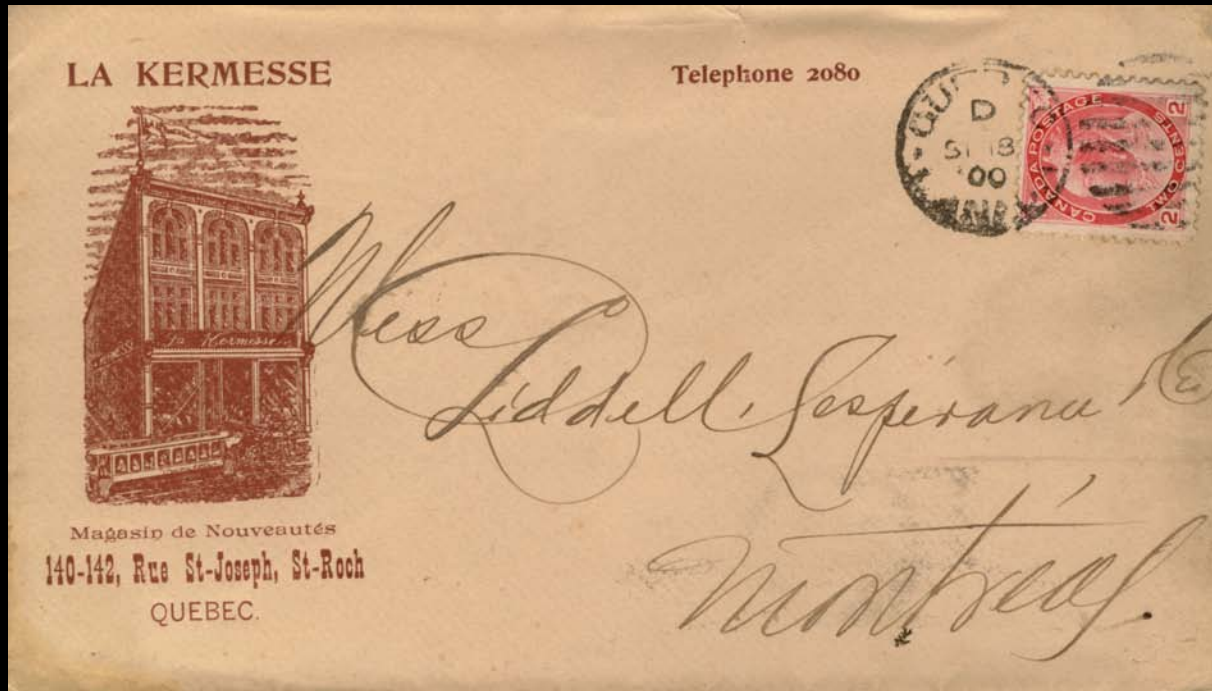 LA KERMESSE
Telephone 2080
D
18
00
CANADA POSTAGE
2 TWO CENTS 2
La Kermesse
Mess
Liddell, Lespérance &
Montréal.
Magasin de Nouveautés
140-142, Rue St-Joseph, St-Roch
QUEBEC.